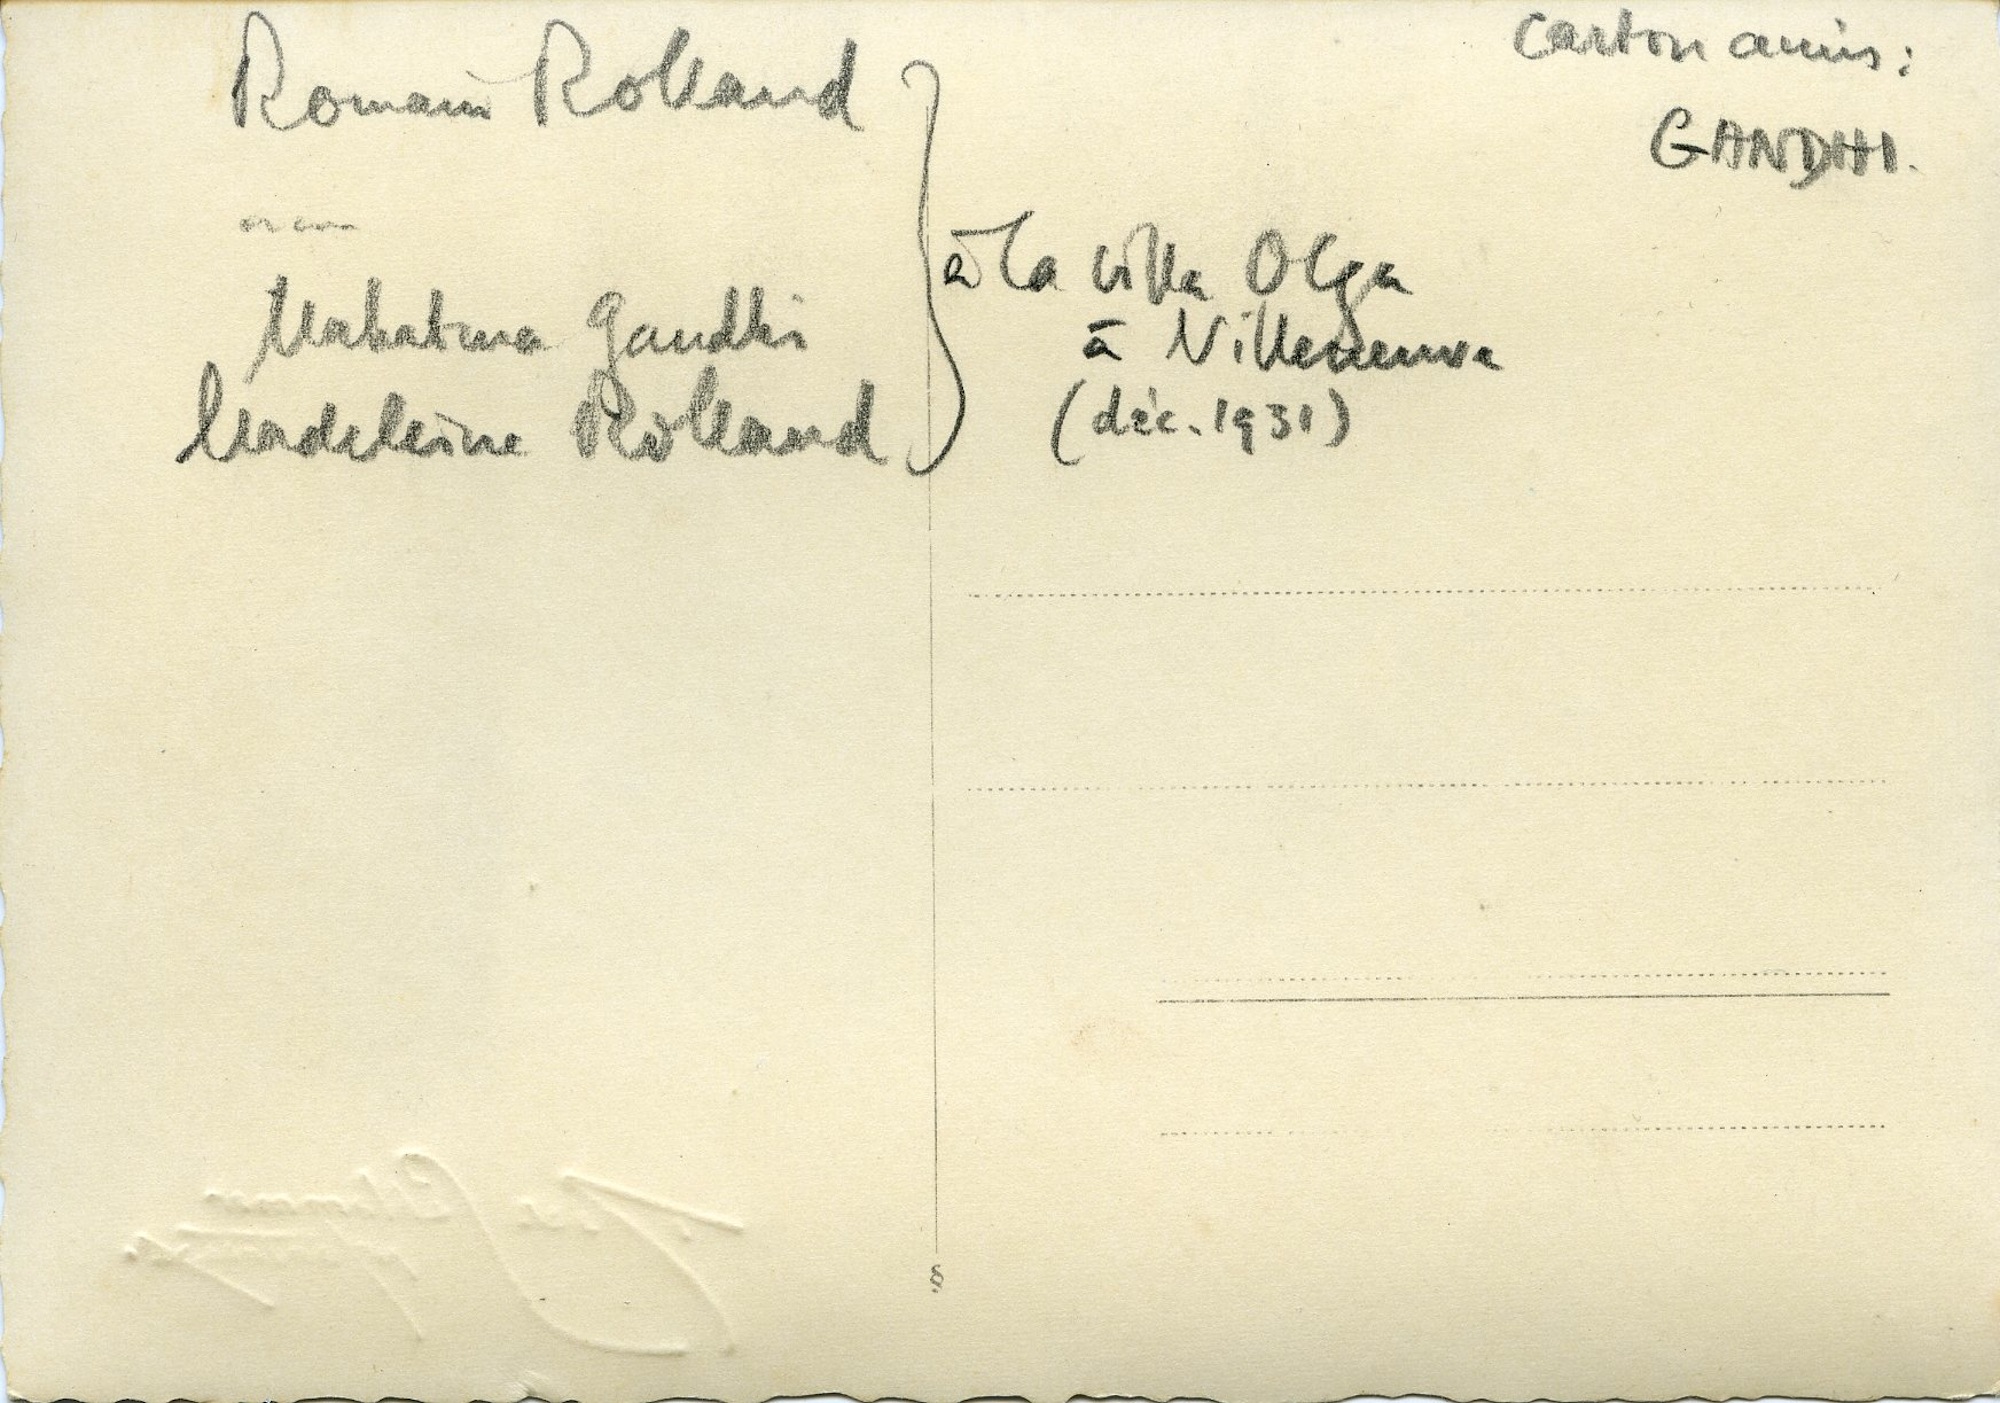 Carton amis:
GANDHI.
Romain Rolland
Mahatma Gandhi
Madeleine Rolland
à la villa Olga
à Villeneuve
(déc. 1931)
§